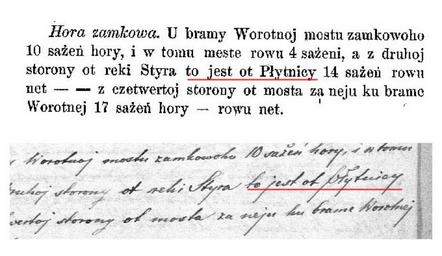 Hora zamkowa. U bramy Worotnoj mostu zamkowoho
10 sažeń hory, i w tomu meste rowu 4 saženi, a z druhoj
storony ot reki Styra to jest ot Płytnicy 14 sažeń rowu
net — — z czetwertoj storony ot mosta za neju ku brame
Worotnej 17 sažeń hory — rowu net.
Worotnoj mostu zamkowoho 10 sažeń hory, i w tomu
druhoj storony ot reki Styra to jest ot Płytnicy
wertoj storony ot mosta za neju ku brame Worotnej